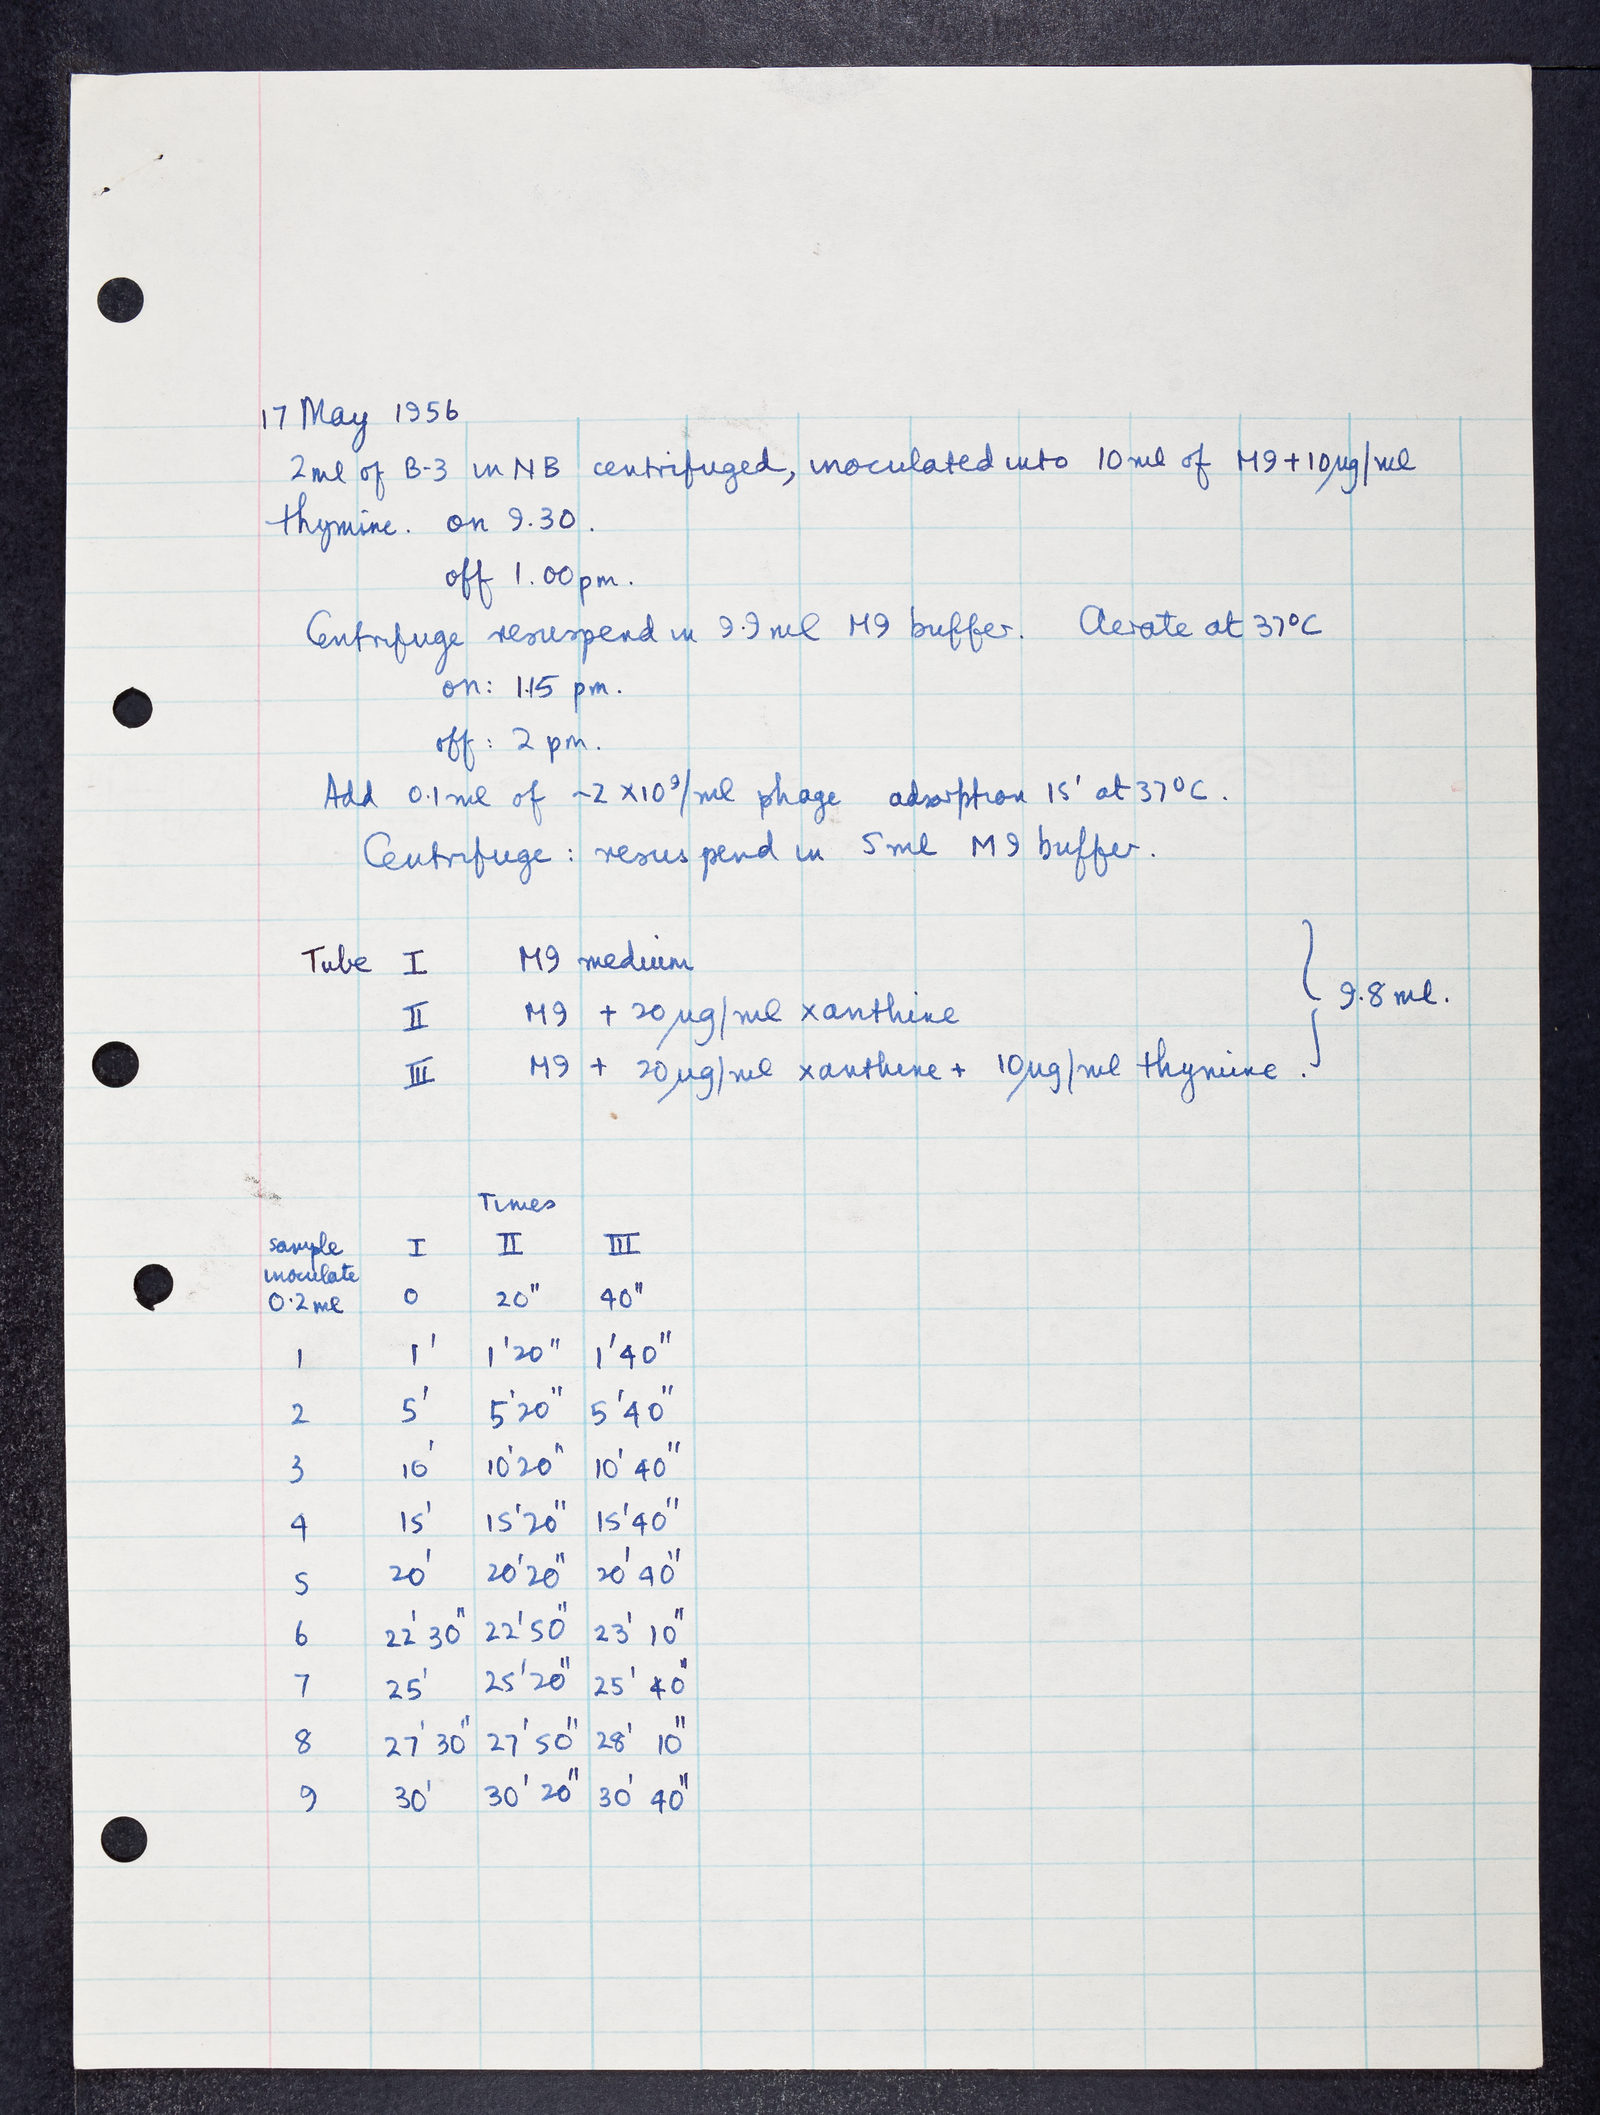 17 May 1956
2ml of B-3 in NB centrifuged, inoculated into 10 ml of M9 + 10µg/ml
thymine. on 9.30.
off 1.00pm.
Centrifuge resuspend in 9.9 ml M9 buffer. Aerate at 37°C
on: 1.15 pm.
off: 2 pm.
Add 0.1 ml of ~2 × 10⁹/ml phage adsorption 15' at 37°C.
Centrifuge: resuspend in 5 ml M9 buffer.
Tube I M9 medium
II M9 + 20µg/ml xanthine
III M9 + 20µg/ml xanthine + 10µg/ml thymine.
} 9.8 ml.
Times
sample I II III
inoculate
0.2 ml 0 20" 40"
1 1' 1'20" 1'40"
2 5' 5'20" 5'40"
3 10' 10'20" 10'40"
4 15' 15'20" 15'40"
5 20' 20'20" 20'40"
6 22'30" 22'50" 23'10"
7 25' 25'20" 25'40"
8 27'30" 27'50" 28'10"
9 30' 30'20" 30'40"